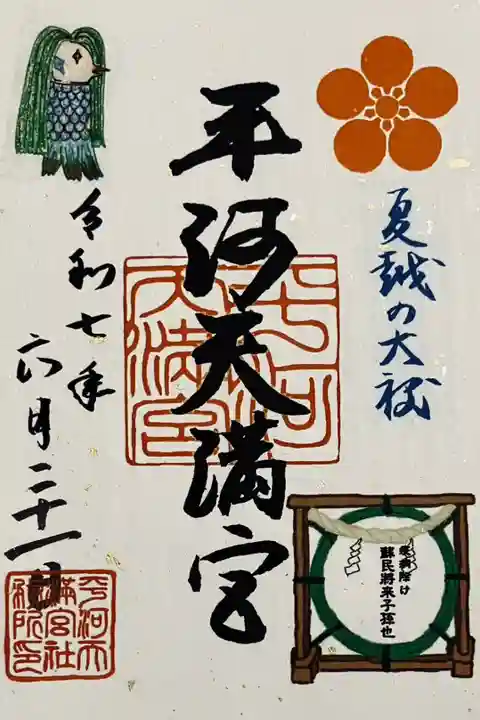 夏越の大祓
疫病除け
蘇民將来子孫也
平河天満宮
平河
天満宮
令和七年
六月二十一日
平河天
満宮社
務所印